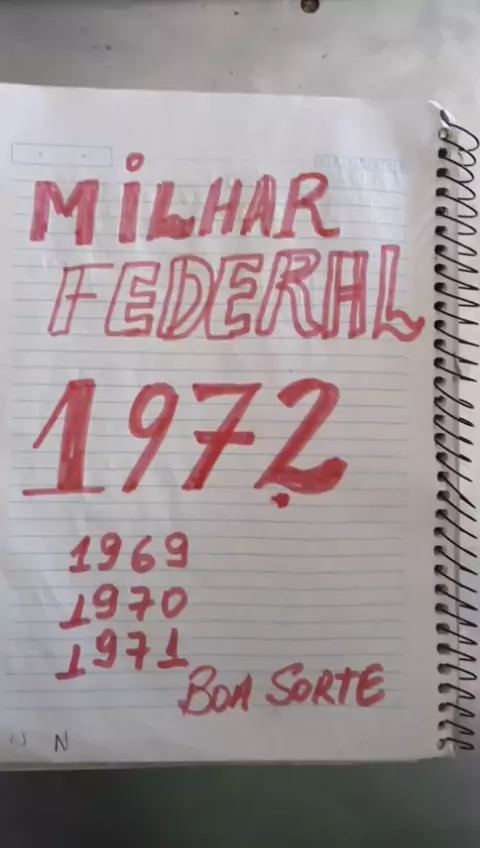 MiLHAR
FEDERAL
1972
1969
1970
1971
BOA SORTE
N